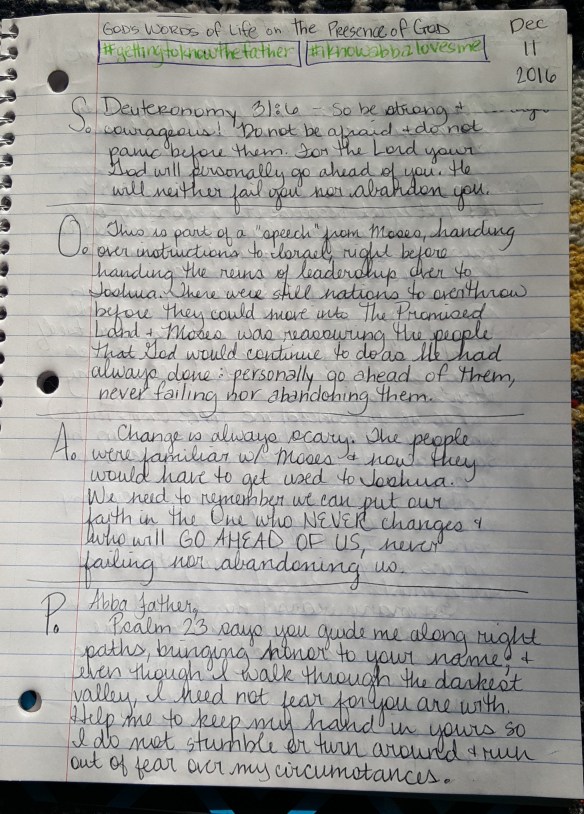 GOD'S WORDS OF LIFE on THE PRESENCE OF GOD
Dec
#gettingtoknowthefather #iknowabbalovesme
11
2016
S. Deuteronomy 31:6 - So be strong +
courageous! Do not be afraid + do not
panic before them. For the Lord your
God will personally go ahead of you. He
will neither fail you nor abandon you.
O. This is part of a "speech" from Moses, handing
over instructions to Israel, right before
handing the reins of leadership over to
Joshua. There were still nations to overthrow
before they could move into The Promised
Land + Moses was reassuring the people
that God would continue to do as He had
always done: personally go ahead of them,
never failing nor abandoning them.
A. Change is always scary. The people
were familiar w/ Moses + now they
would have to get used to Joshua.
We need to remember we can put our
faith in the One who NEVER changes +
who will GO AHEAD OF US, never
failing nor abandoning us.
P. Abba Father,
Psalm 23 says you guide me along right
paths, bringing honor to your name; +
even though I walk through the darkest
valley, I need not fear for you are with.
Help me to keep my hand in yours so
I do not stumble or turn around + run
out of fear over my circumstances.